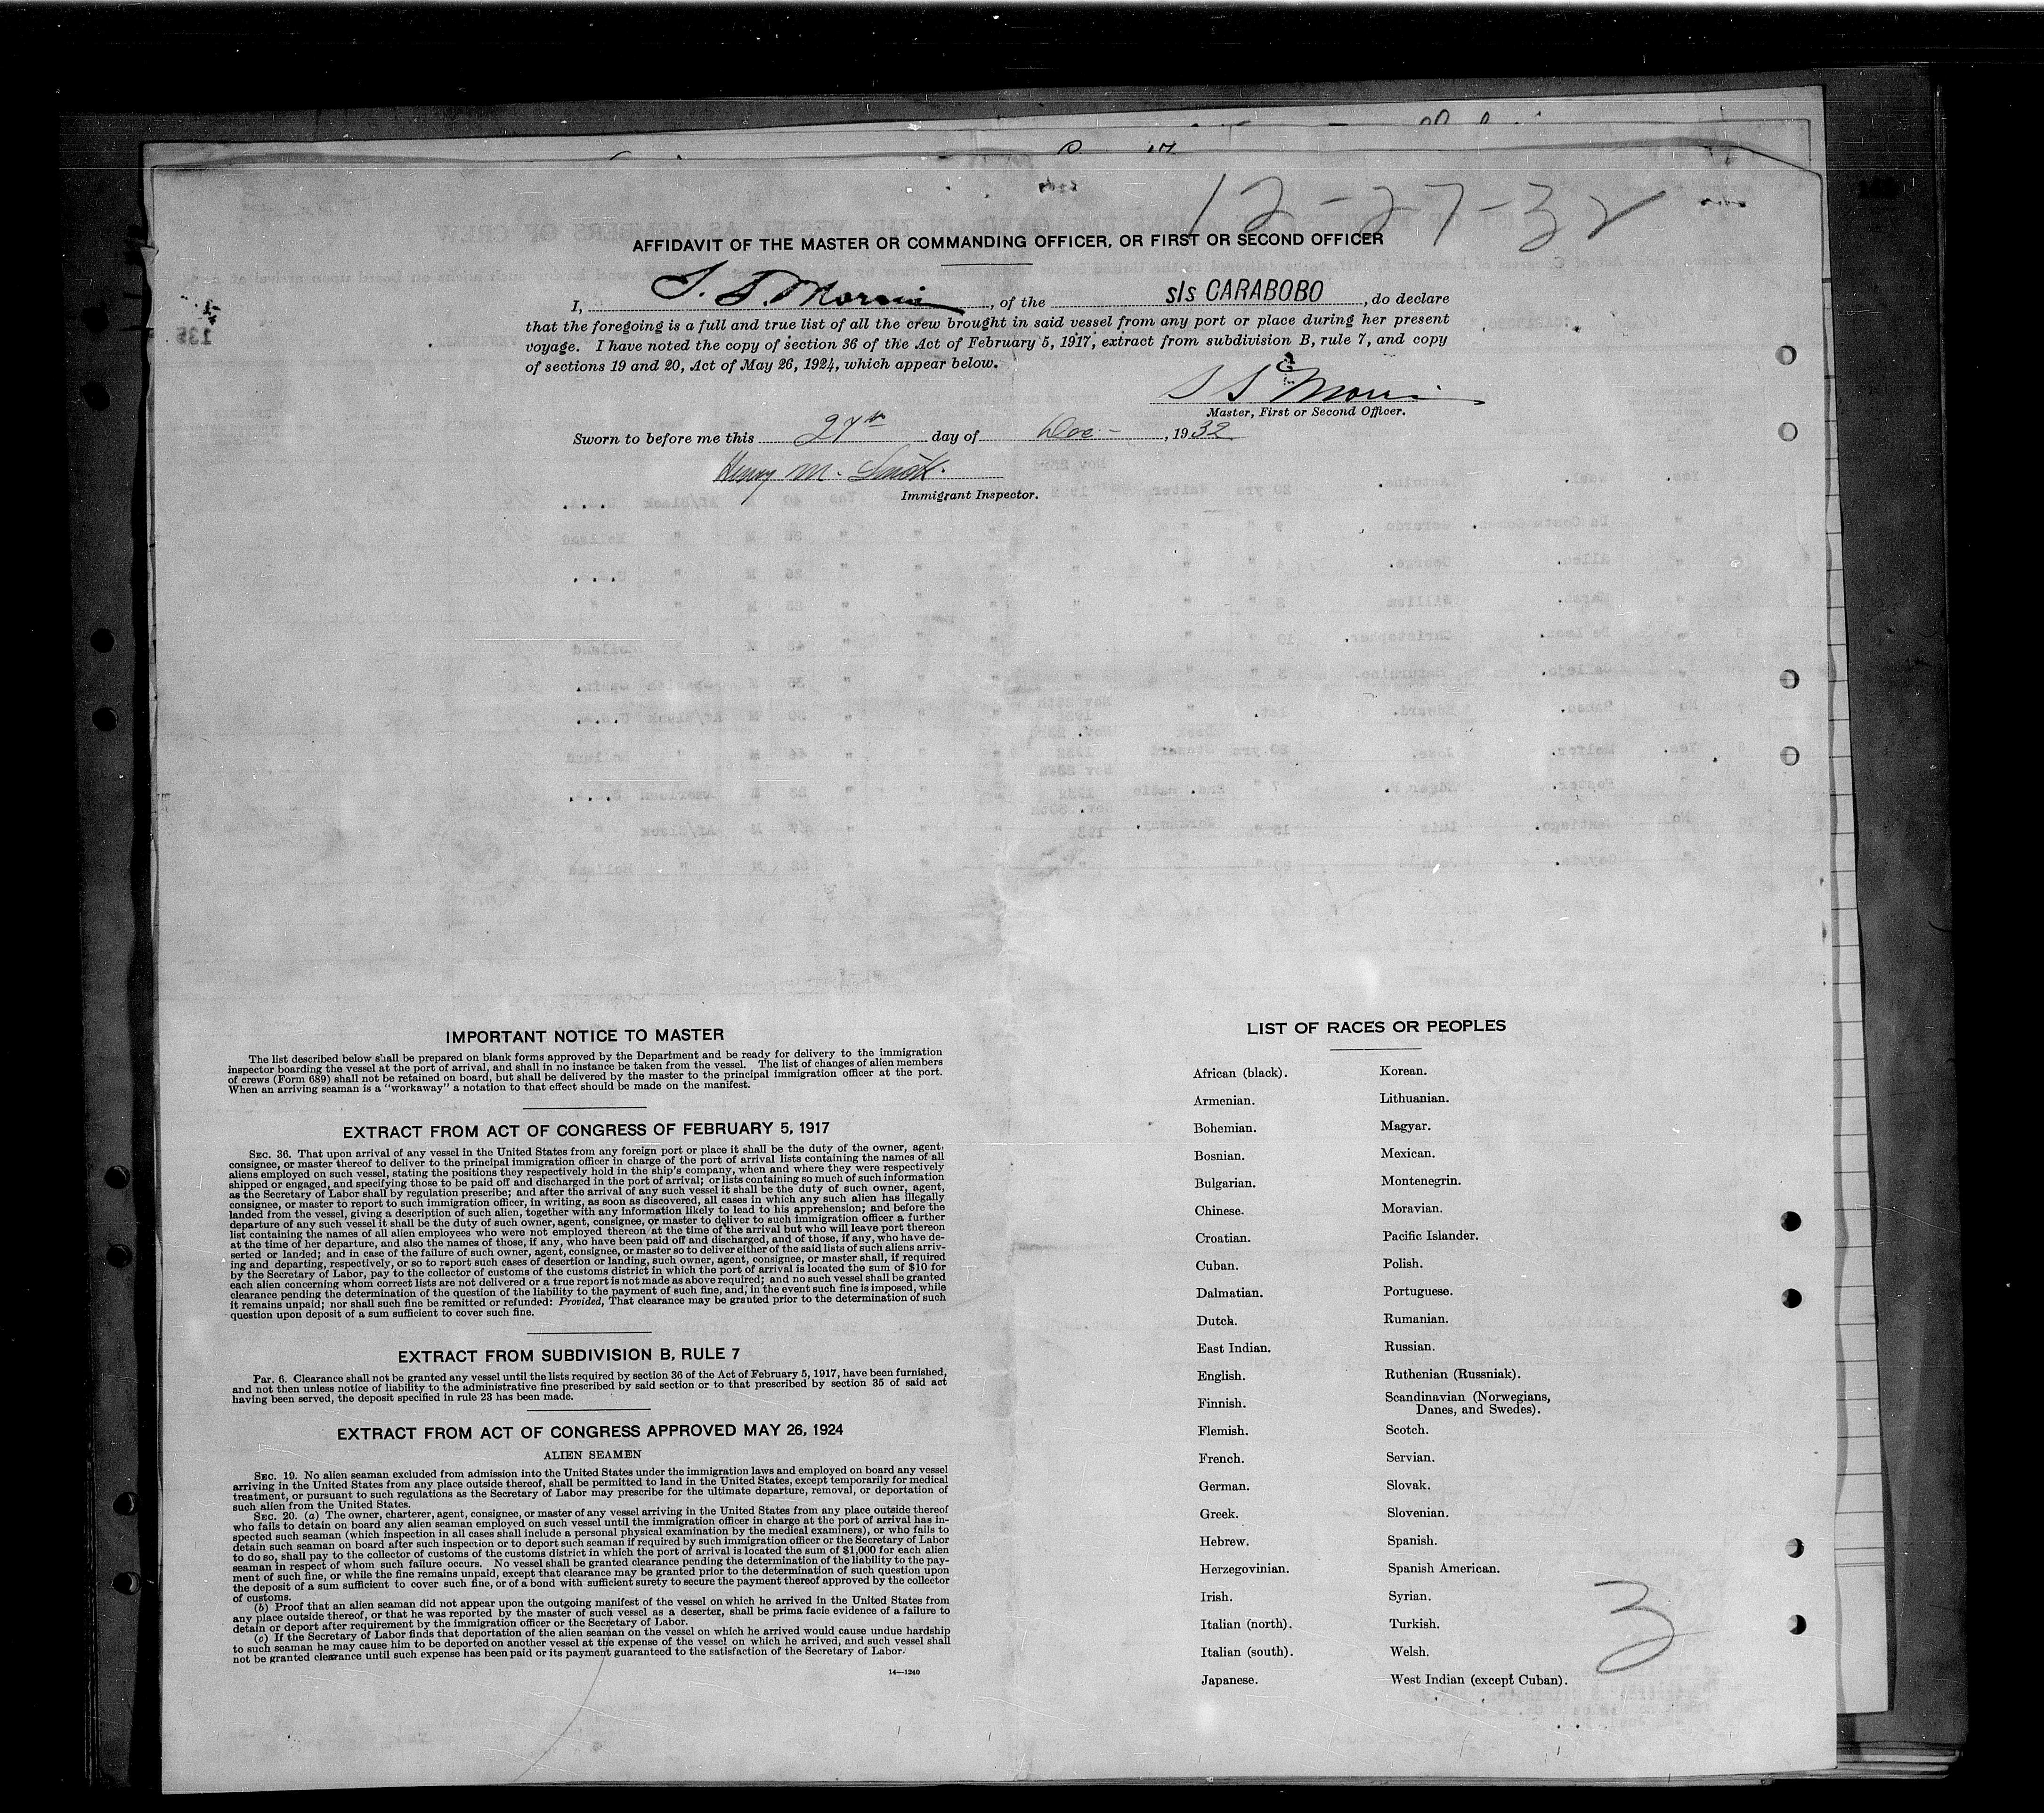 12-27-32
AFFIDAVIT OF THE MASTER OR COMMANDING OFFICER, OR FIRST OR SECOND OFFICER
I, , of the s/s CARABOBO, do declare
that the foregoing is a full and true list of all the crew brought in said vessel from any port or place during her present
voyage. I have noted the copy of section 36 of the Act of February 5, 1917, extract from subdivision B, rule 7, and copy
of sections 19 and 20, Act of May 26, 1924, which appear below.
Master, First or Second Officer.
Sworn to before me this 27th day of Dec - , 1932
Henry M. Smith.
Immigrant Inspector.
IMPORTANT NOTICE TO MASTER
The list described below shall be prepared on blank forms approved by the Department and be ready for delivery to the immigration
inspector boarding the vessel at the port of arrival, and shall in no instance be taken from the vessel. The list of changes of alien members
of crews (Form 689) shall not be retained on board, but shall be delivered by the master to the principal immigration officer at the port.
When an arriving seaman is a "workaway" a notation to that effect should be made on the manifest.
EXTRACT FROM ACT OF CONGRESS OF FEBRUARY 5, 1917
SEC. 36. That upon arrival of any vessel in the United States from any foreign port or place it shall be the duty of the owner, agent,
consignee, or master thereof to deliver to the principal immigration officer in charge of the port of arrival lists containing the names of all
aliens employed on such vessel, stating the positions they respectively hold in the ship's company, when and where they were respectively
shipped or engaged, and specifying those to be paid off and discharged in the port of arrival; or lists containing so much of such information
as the Secretary of Labor shall by regulation prescribe; and after the arrival of any such vessel it shall be the duty of such owner, agent,
consignee, or master to report to such immigration officer, in writing, as soon as discovered, all cases in which any such alien has illegally
landed from the vessel, giving a description of such alien, together with any information likely to lead to his apprehension; and before the
departure of any such vessel it shall be the duty of such owner, agent, consignee, or master to deliver to such immigration officer a further
list containing the names of all alien employees who were not employed thereon at the time of the arrival but who will leave port thereon
at the time of her departure, and also the names of those, if any, who have been paid off and discharged, and of those, if any, who have de-
serted or landed; and in case of the failure of such owner, agent, consignee, or master so to deliver either of the said lists of such aliens arriv-
ing and departing, respectively, or so to report such cases of desertion or landing, such owner, agent, consignee, or master shall, if required
by the Secretary of Labor, pay to the collector of customs of the customs district in which the port of arrival is located the sum of $10 for
each alien concerning whom correct lists are not delivered or a true report is not made as above required; and no such vessel shall be granted
clearance pending the determination of the question of the liability to the payment of such fine, and, in the event such fine is imposed, while
it remains unpaid; nor shall such fine be remitted or refunded: Provided, That clearance may be granted prior to the determination of such
question upon deposit of a sum sufficient to cover such fine.
EXTRACT FROM SUBDIVISION B, RULE 7
Par. 6. Clearance shall not be granted any vessel until the lists required by section 36 of the Act of February 5, 1917, have been furnished,
and not then unless notice of liability to the administrative fine prescribed by said section or to that prescribed by section 35 of said act
having been served, the deposit specified in rule 23 has been made.
EXTRACT FROM ACT OF CONGRESS APPROVED MAY 26, 1924
ALIEN SEAMEN
SEC. 19. No alien seaman excluded from admission into the United States under the immigration laws and employed on board any vessel
arriving in the United States from any place outside thereof, shall be permitted to land in the United States, except temporarily for medical
treatment, or pursuant to such regulations as the Secretary of Labor may prescribe for the ultimate departure, removal, or deportation of
such alien from the United States.
SEC. 20. (a) The owner, charterer, agent, consignee, or master of any vessel arriving in the United States from any place outside thereof
who fails to detain on board any alien seaman employed on such vessel until the immigration officer in charge at the port of arrival has in-
spected such seaman (which inspection in all cases shall include a personal physical examination by the medical examiners), or who fails to
detain such seaman on board after such inspection or to deport such seaman if required by such immigration officer or the Secretary of Labor
to do so, shall pay to the collector of customs of the customs district in which the port of arrival is located the sum of $1,000 for each alien
seaman in respect of whom such failure occurs. No vessel shall be granted clearance pending the determination of the liability to the pay-
ment of such fine, or while the fine remains unpaid, except that clearance may be granted prior to the determination of such question upon
the deposit of a sum sufficient to cover such fine, or of a bond with sufficient surety to secure the payment thereof approved by the collector
of customs.
(b) Proof that an alien seaman did not appear upon the outgoing manifest of the vessel on which he arrived in the United States from
any place outside thereof, or that he was reported by the master of such vessel as a deserter, shall be prima facie evidence of a failure to
detain or deport after requirement by the immigration officer or the Secretary of Labor.
(c) If the Secretary of Labor finds that deportation of the alien seaman on the vessel on which he arrived would cause undue hardship
to such seaman he may cause him to be deported on another vessel at the expense of the vessel on which he arrived, and such vessel shall
not be granted clearance until such expense has been paid or its payment guaranteed to the satisfaction of the Secretary of Labor.
14—1240
LIST OF RACES OR PEOPLES
African (black).
Armenian.
Bohemian.
Bosnian.
Bulgarian.
Chinese.
Croatian.
Cuban.
Dalmatian.
Dutch.
East Indian.
English.
Finnish.
Flemish.
French.
German.
Greek.
Hebrew.
Herzegovinian.
Irish.
Italian (north).
Italian (south).
Japanese.
Korean.
Lithuanian.
Magyar.
Mexican.
Montenegrin.
Moravian.
Pacific Islander.
Polish.
Portuguese.
Rumanian.
Russian.
Ruthenian (Russniak).
Scandinavian (Norwegians,
Danes, and Swedes).
Scotch.
Servian.
Slovak.
Slovenian.
Spanish.
Spanish American.
Syrian.
Turkish.
Welsh.
West Indian (except Cuban).
3